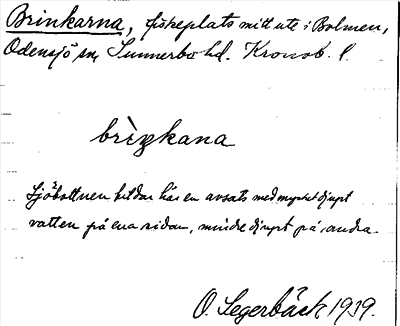 Brinkarna, fiskeplats mitt ute i Bolmen,
Odensjö sn, Sunnerbo hd. Kronob. l.
brìŋkana
Sjöbottnen bildar här en avsats med mycket djupt
vatten på ena sidan, mindre djupt på andra.
O. Segerbäck 1939.